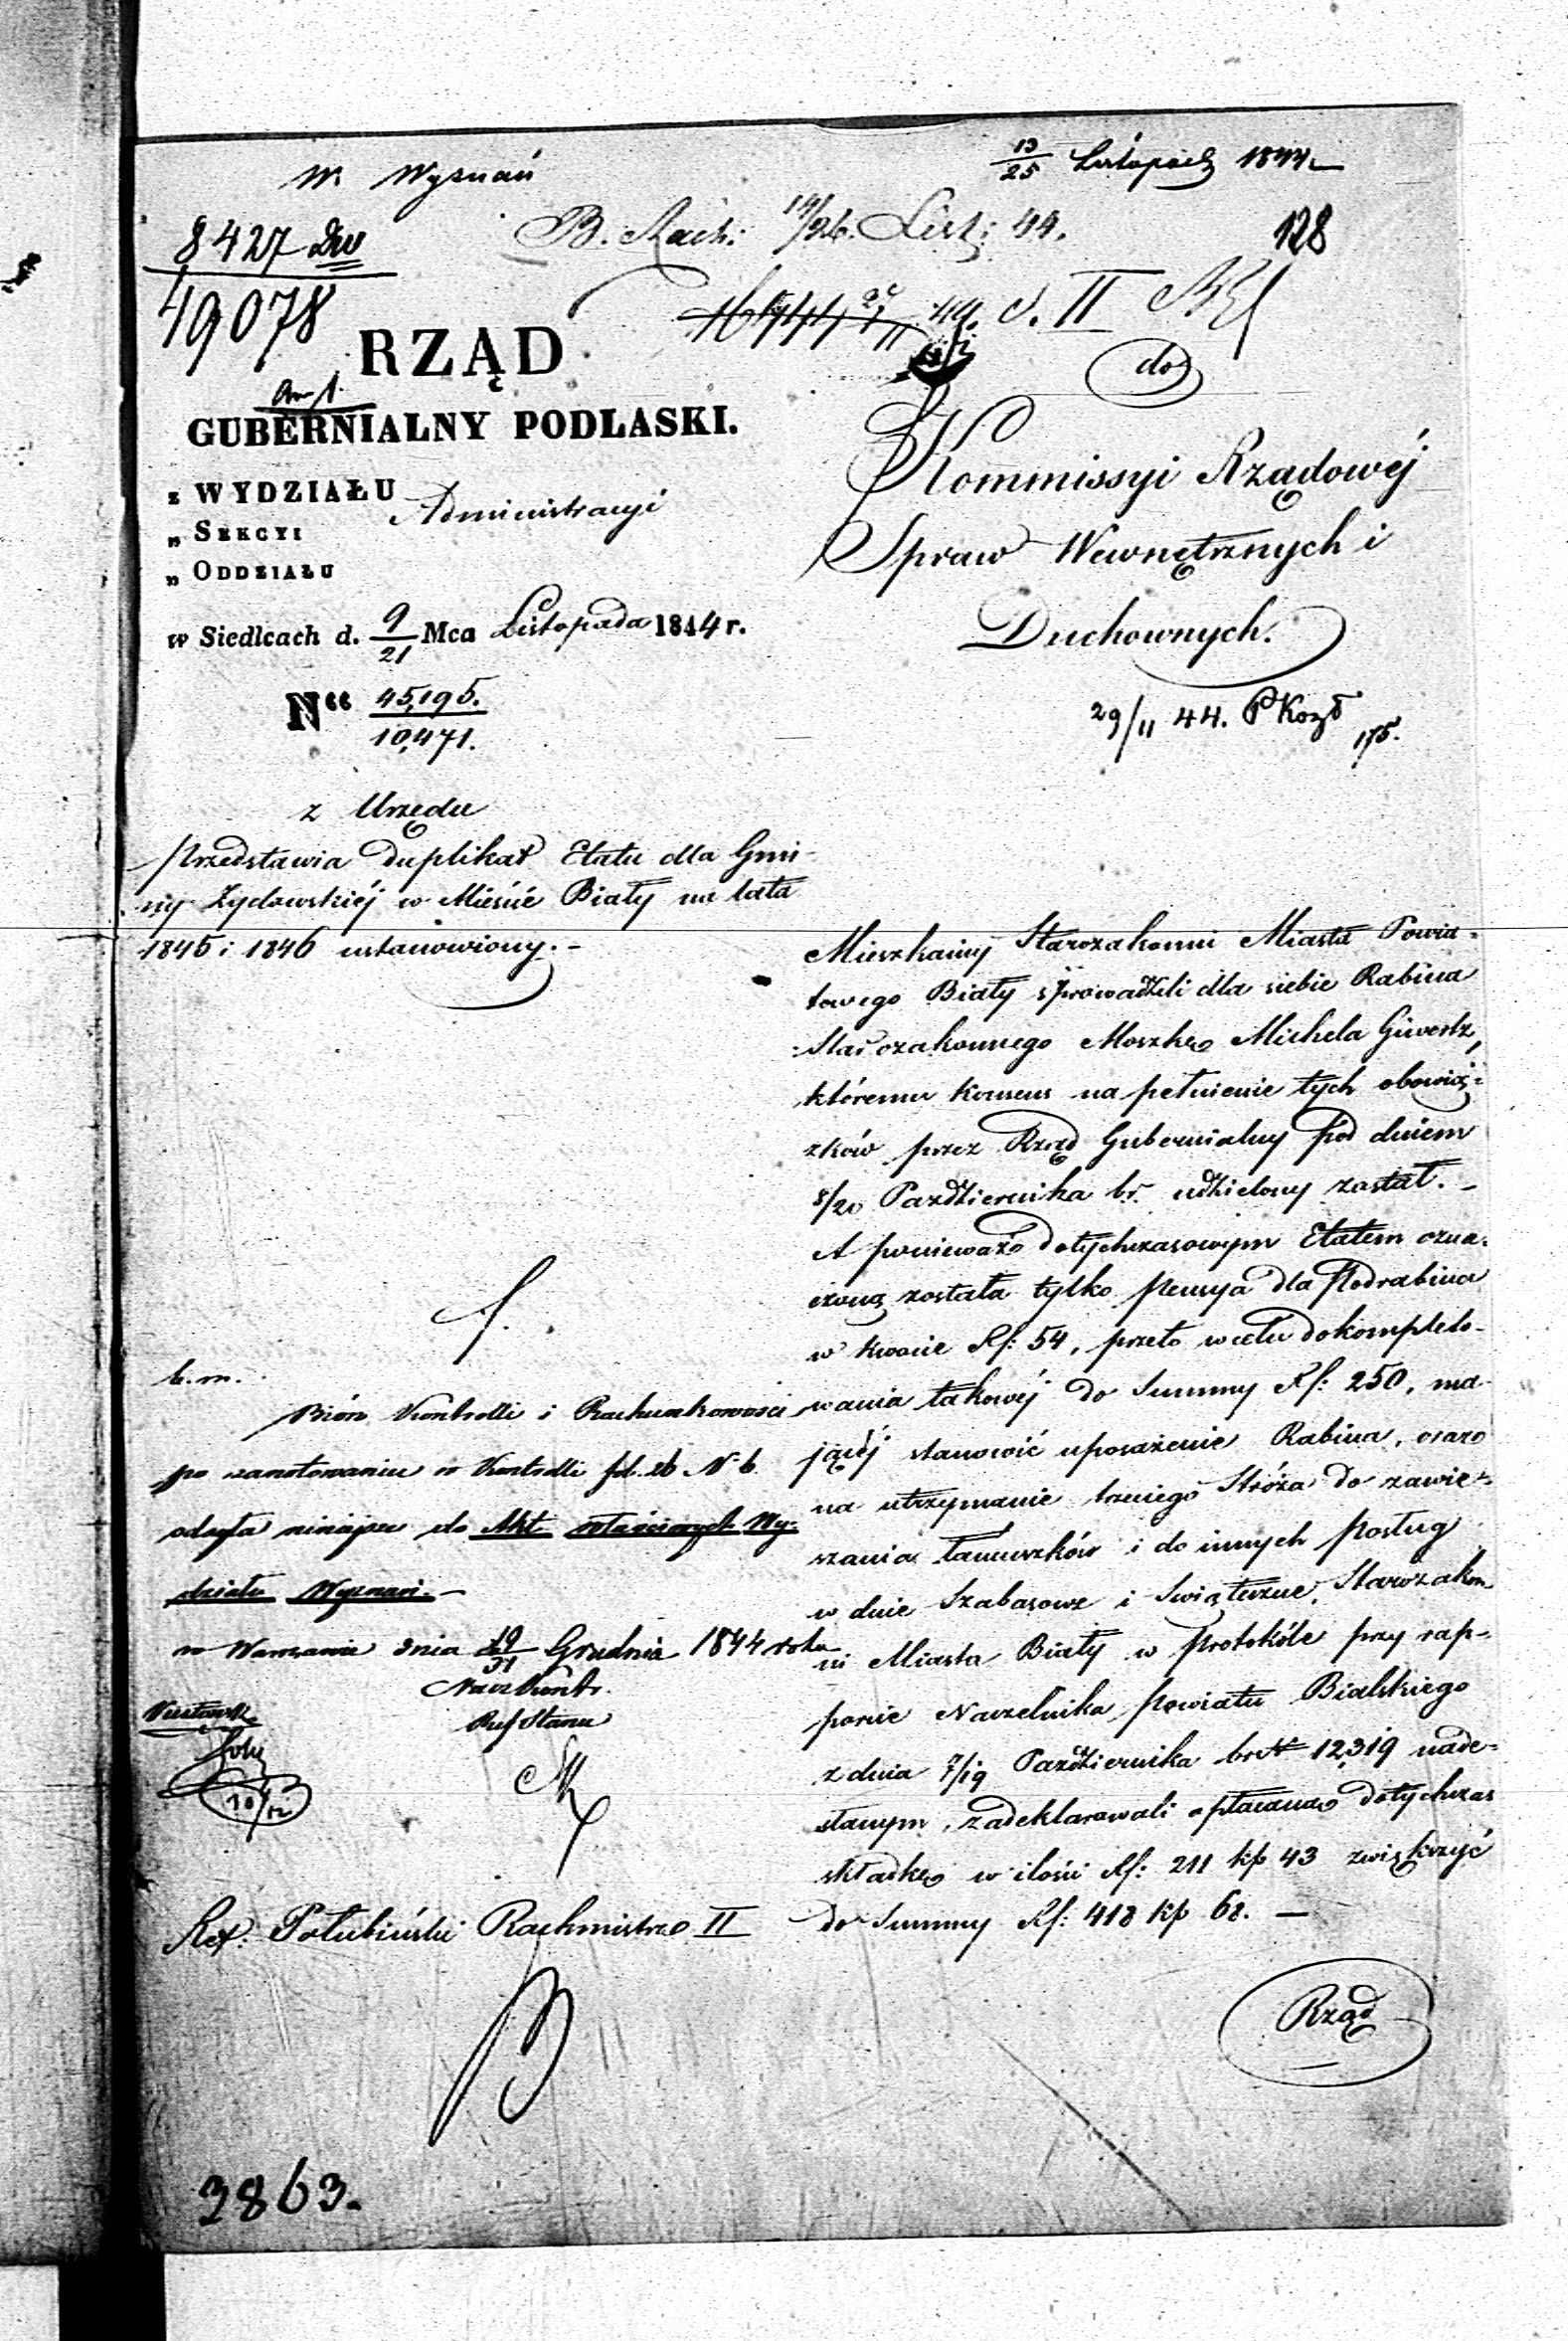 W. Wyznań
13/25 Listopad 1844
8427 Dw
49078
B. Rach: 14/26. List: 44.
128
do
RZĄD
GUBERNIALNY PODLASKI.
z WYDZIAŁU Administracyi
„ SEKCYI
„ ODDZIAŁU
w Siedlcach d. 9/21 Mca Listopada 1844 r.
N 45,195.
10,471.
Kommissyi Rządowéj
Spraw Wewnętrznych i
Duchownych.
29/11 44.
175.
z Urzędu
Przedstawia duplikat Etatu dla Gmi-
ny Żydowskiéj w Mieście Biały na lata
1845 i 1846 ustanowiony. -
Mieszkańcy Starozakonni Miasta Powia-
towego Biały sprowadzili dla siebie Rabina
Starozakonnego Moszkę Michela Giwertz,
któremu konsens na pełnienie tych obowią-
zków przez Rząd Gubernialny pod dniem
8/20 Października br. udzielony został. -
A ponieważ dotychczasowym Etatem ozna-
czoną została tylko pensya dla Podrabina
w kwocie Rf: 54, przeto w celu dokompleto-
wania takowéj do Summy Rf: 250, ma-
jącéj stanowić uposażenie Rabina, oraz
na utrzymanie trzeciego Stróża do zawie-
szania łańcuszków i do innych posług
w dnie Szabasowe i Świąteczne, Starozakon
ni Miasta Biały w protokóle przy rap-
porcie Naczelnika Powiatu Bialskiego
z dnia 7/19 Października br N 12,319 nade-
słanym, zadeklarowali opłacaną dotychczas
składkę w ilości Rf: 211 kp 43 zwiększyć
do Summy Rf: 418 kp 68. —
Rząd
b. m.
Bióro Kontrolli i Rachunkowości
po zanotowaniu w Kontrolli fol. 26 N. 6
odsyła niniejsze do Akt właściwych Wy-
działu Wyznań. -
w Warszawie dnia 19/31 Grudnia 1844 roku
Nacz Kontr.
Ref Stanu
Ref: Połubiński Rachmistrz II
3863.